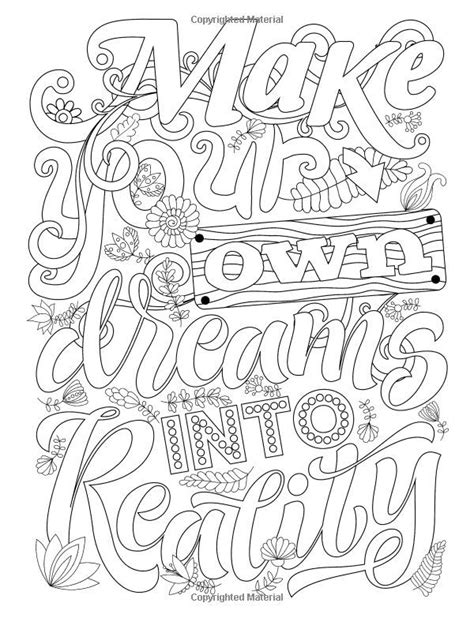 Copyrighted Material
Make
your
own
dreams
INTO
Reality
Copyrighted Material